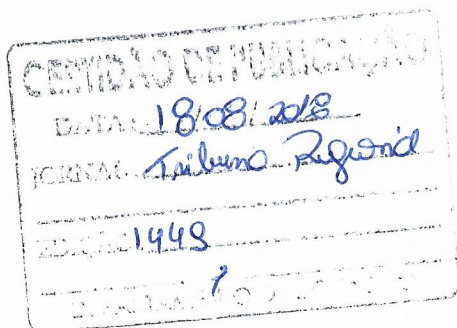 CERTIDÃO DE PUBLICAÇÃO
DATA: 18/08/2018
JORNAL Tribuna Regional
EDIÇÃO 1449